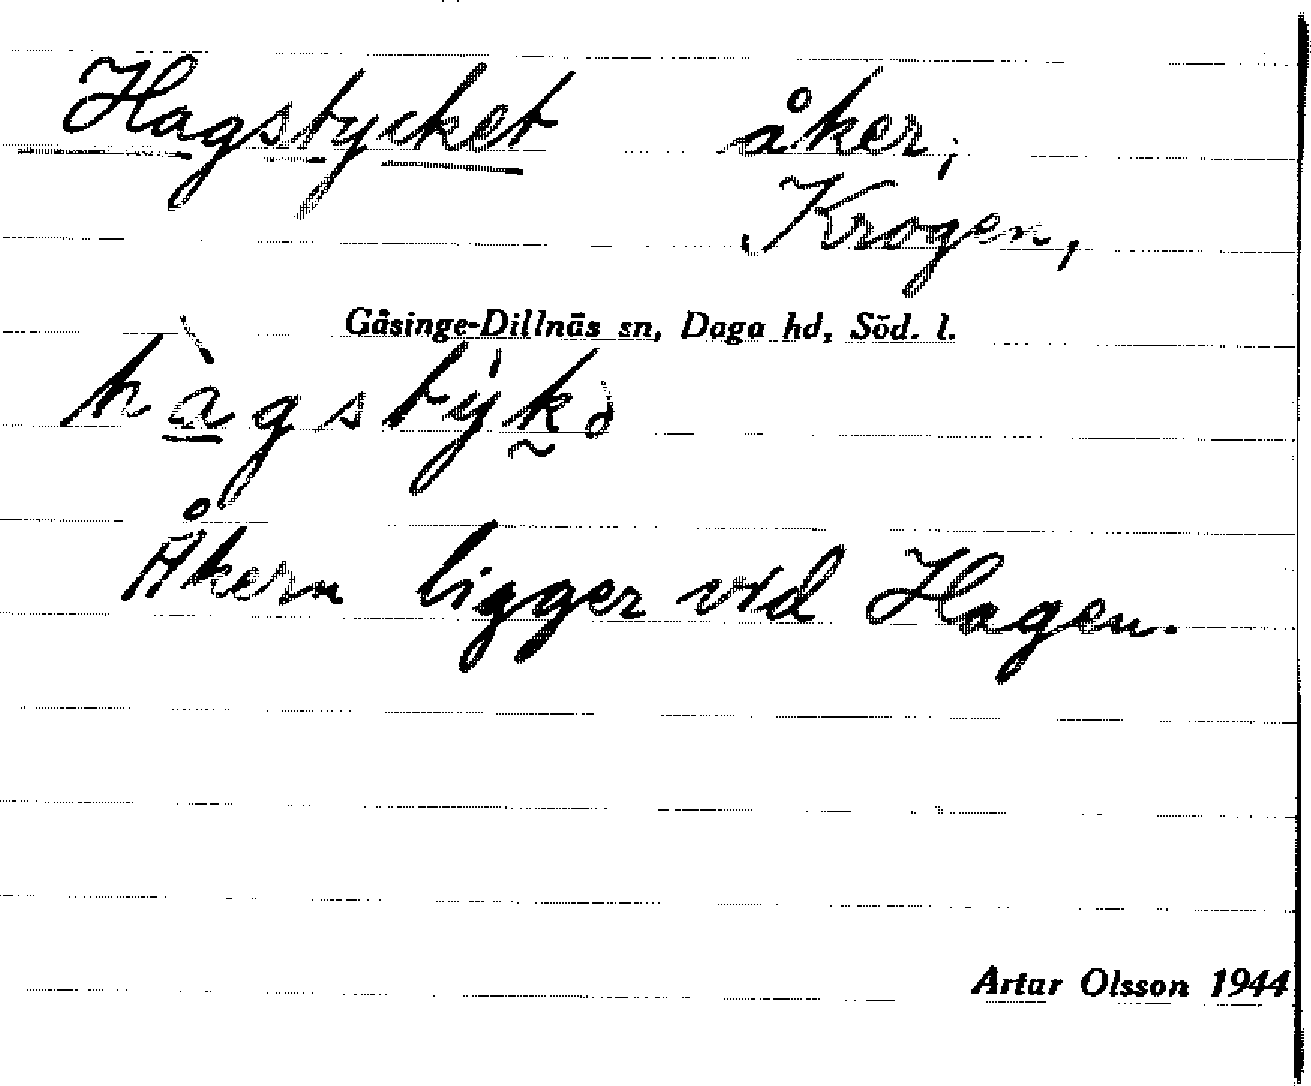 Hagstycket åker,
Krogen,
Gåsinge-Dillnäs sn, Daga hd, Söd. l.
hàgstýkə
Åkern ligger vid Hagen.
Artar Olsson 1944